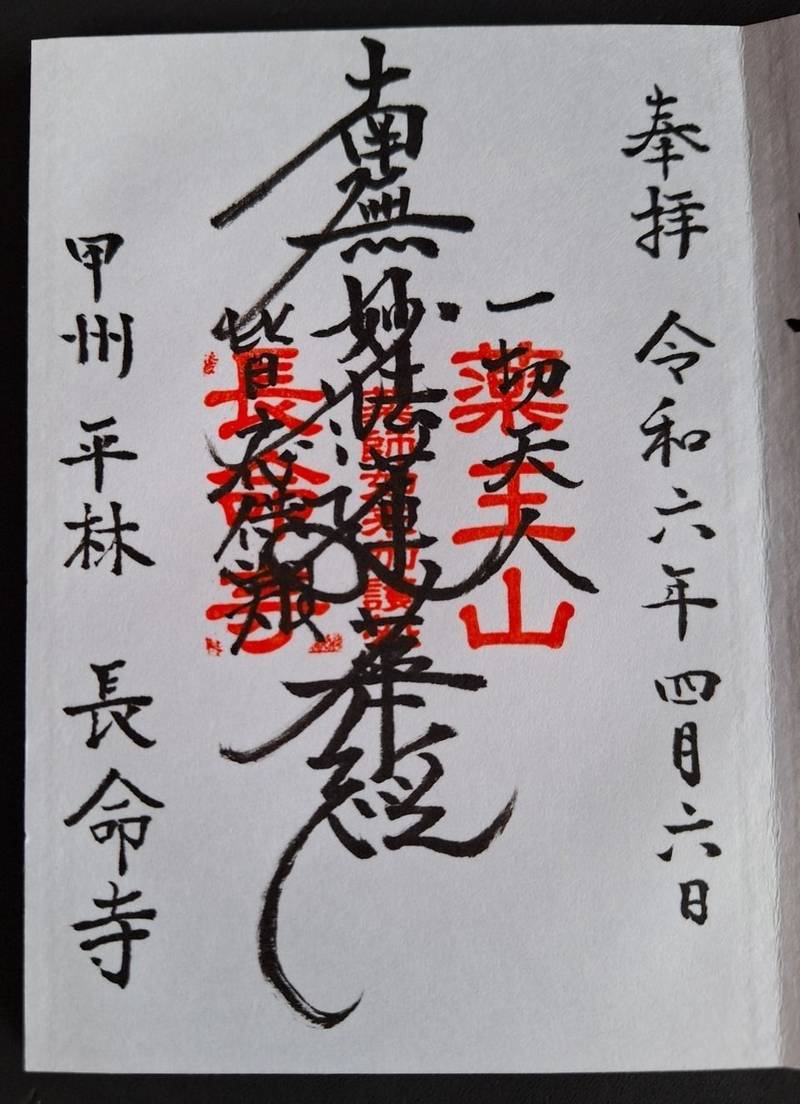 奉拝 令和六年四月六日
一切天人
薬王山
南無妙法蓮華経
皆応供養
長命寺
甲州 平林 長命寺